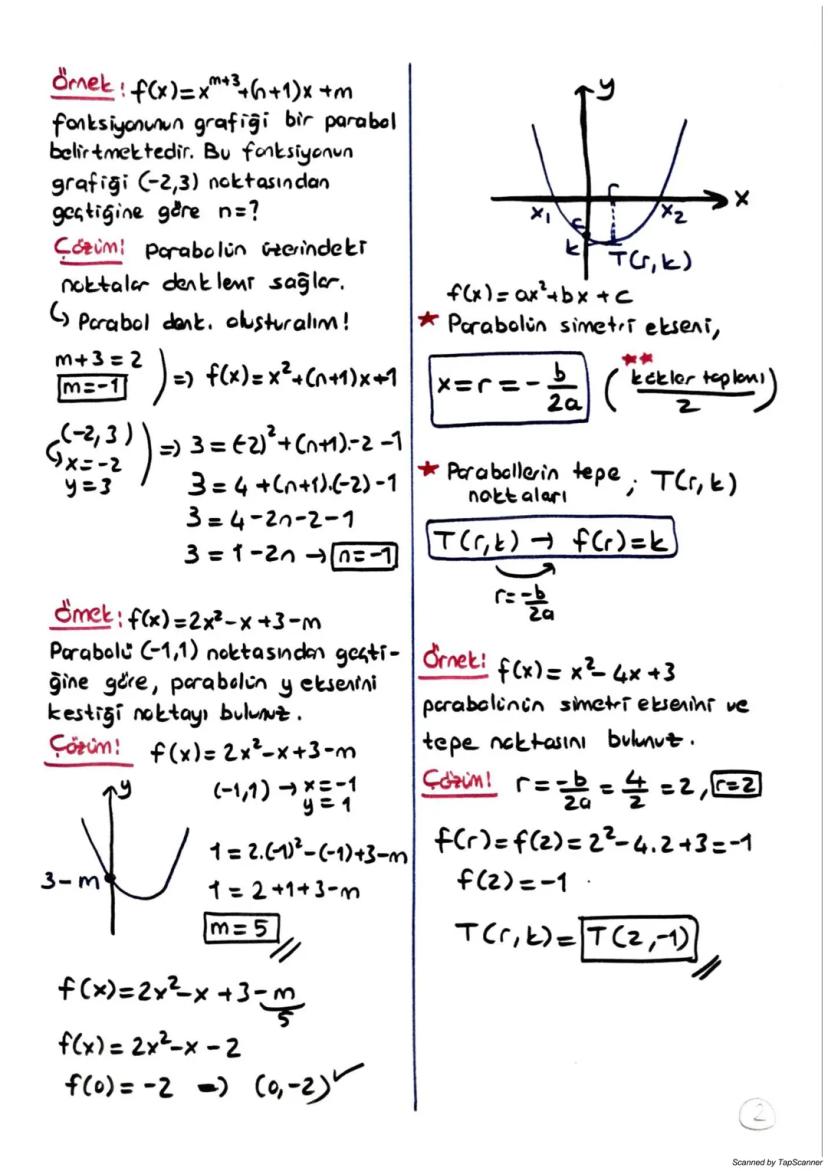 Örnek: f(x)=x^(m+3)+(n+1)x+m
fonksiyonunun grafiği bir parabol
belirtmektedir. Bu fonksiyonun
grafiği (-2,3) noktasından
geçtiğine göre n=?
Çözüm! Parabolün üzerindeki
noktalar denklemi sağlar.
↳ Parabol denk. oluşturalım!
m+3=2
m=-1
) => f(x)=x²+(n+1)x+1
(-2,3)
↳x=-2
y=3
) => 3=(-2)²+(n+1).-2-1
3=4+(n+1).(-2)-1
3=4-2n-2-1
3=1-2n → n=-1
Örnek: f(x)=2x²-x+3-m
Parabolü (-1,1) noktasından geçti-
ğine göre, parabolün y eksenini
kestiği noktayı bulunuz.
Çözüm! f(x)=2x²-x+3-m
(-1,1) → x=-1
y=1
y
3-m
1=2.(-1)²-(-1)+3-m
1=2+1+3-m
m=5
f(x)=2x²-x+3-m
5
f(x)=2x²-x-2
f(0)=-2 => (0,-2)✓
y
r
x
x₁
x₂
c
k
T(r,k)
f(x)=ax²+bx+c
★ Parabolün simetri ekseni,
x=r=-b/2a (★★ kökler toplamı/2)
★ Parabollerin tepe ; T(r,k)
noktaları
T(r,k) → f(r)=k
r=-b/2a
Örnek! f(x)=x²-4x+3
parabolünün simetri eksenini ve
tepe noktasını bulunuz.
Çözüm! r=-b/2a=4/2=2, r=2
f(r)=f(2)=2²-4.2+3=-1
f(2)=-1
T(r,k)=T(2,-1)
2
Scanned by TapScanner